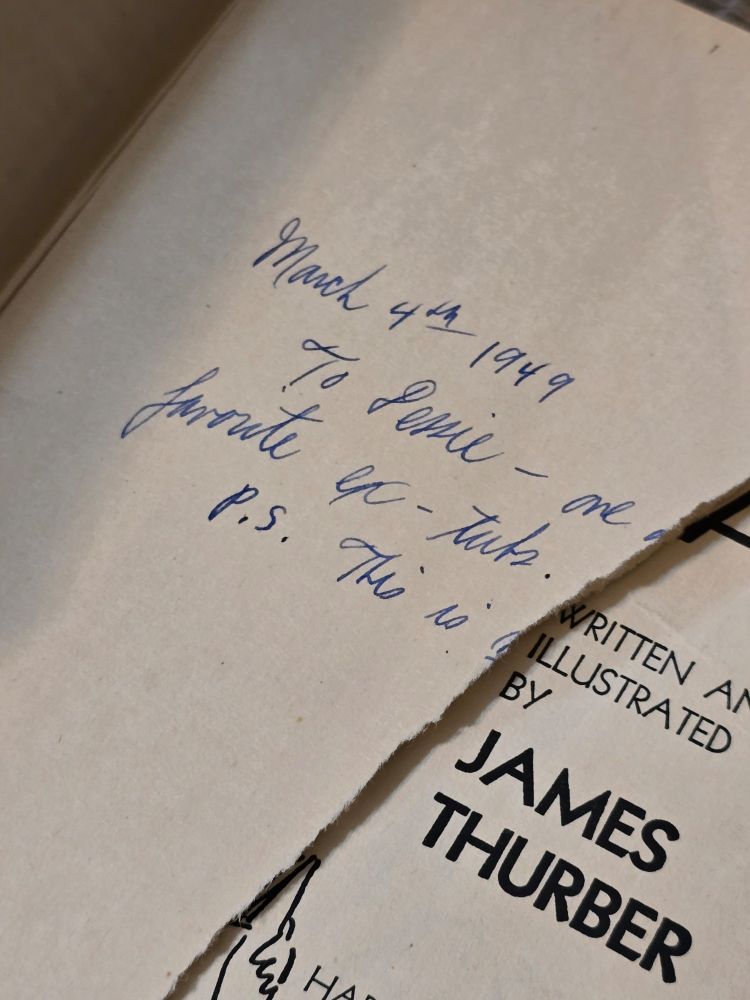 March 4th 1949
To Jessie - one
favorite ex-tubs.
P.S. This is
WRITTEN AN
ILLUSTRATED
BY
JAMES
THURBER
HAR